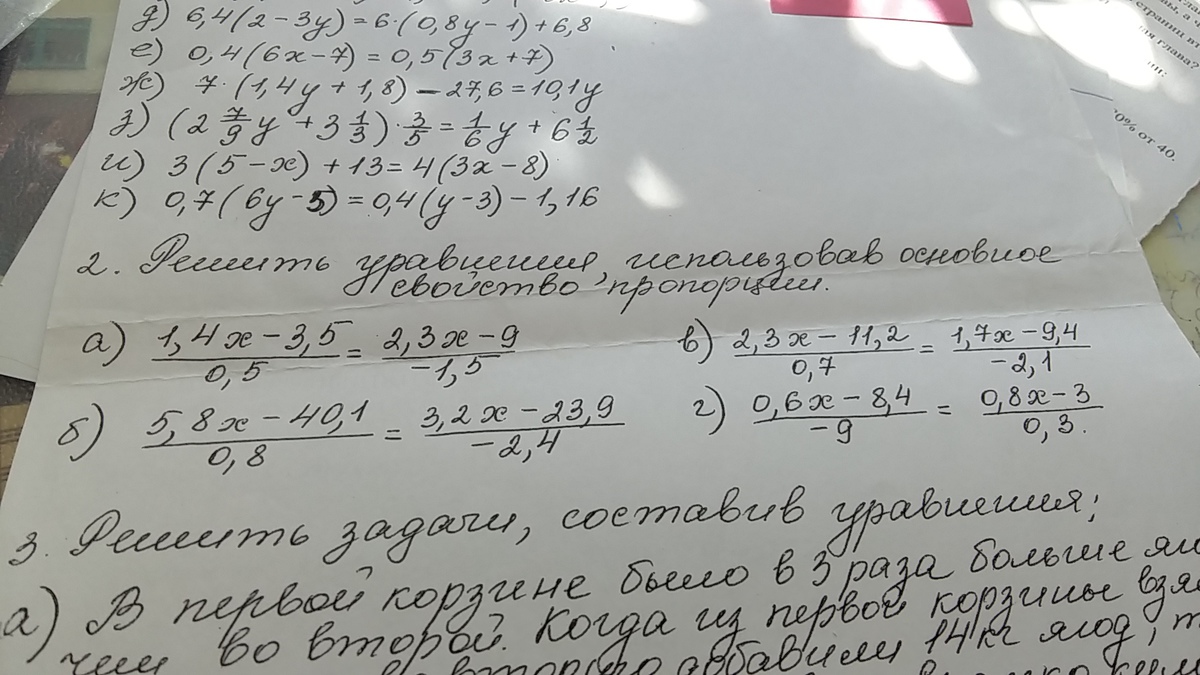 д) 6,4(2-3y)=6·(0,8y-1)+6,8
е) 0,4(6x-7)=0,5(3x+7)
ж) 7·(1,4y+1,8)-27,6=10,1y
з) (2 7/9 y + 3 1/3)·3/5 = 1/6 y + 6 1/2
и) 3(5-x)+13=4(3x-8)
к) 0,7(6y-5)=0,4(y-3)-1,16
2. Решить уравнения, использовав основное
свойство пропорции.
а) (1,4x-3,5)/0,5 = (2,3x-9)/-1,5
в) (2,3x-11,2)/0,7 = (1,7x-9,4)/-2,1
б) (5,8x-40,1)/0,8 = (3,2x-23,9)/-2,4
г) (0,6x-8,4)/-9 = (0,8x-3)/0,3.
3. Решить задачи, составив уравнения;
а) В первой корзине было в 3 раза больше
чем во второй. Когда из первой корзины
добавили 14 кг ягод,
страниц
глава?
0% от 40.